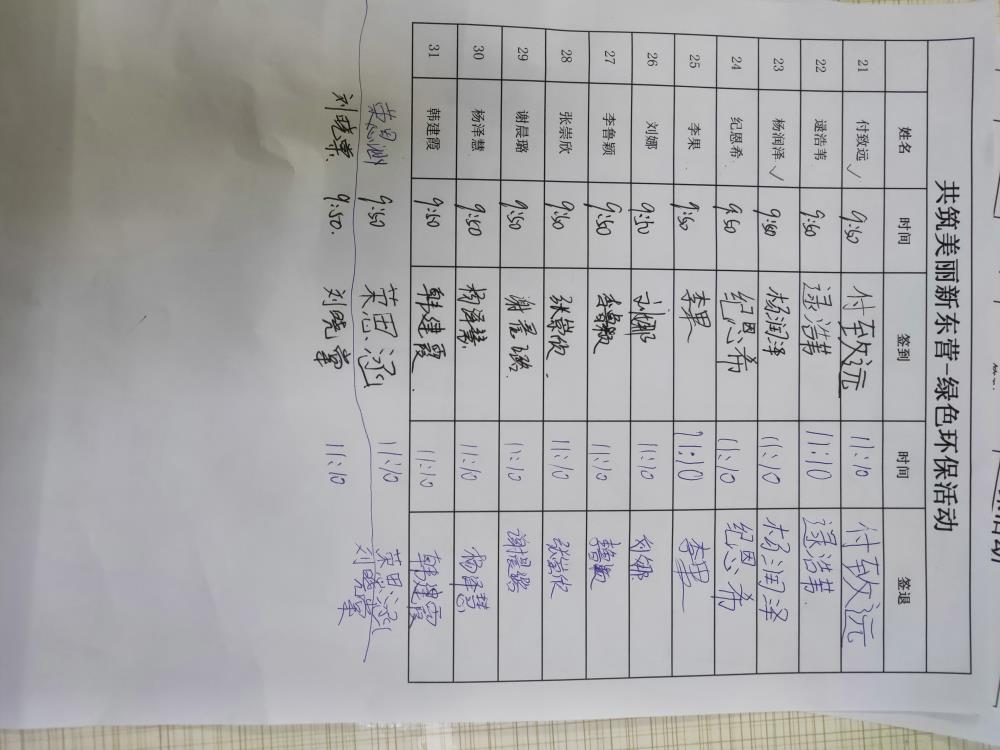 共筑美丽新东营-绿色环保活动
姓名 时间 签到 时间 签退
21 付致远 ✓ 9:50 付致远 11:10 付致远
22 逯浩苇 9:50 逯浩苇 11:10 逯浩苇
23 杨润泽 ✓ 9:50 杨润泽 11:10 杨润泽
24 纪恩希 9:50 纪恩希 11:10 纪恩希
25 李果 9:50 李果 11:10 李果
26 刘娜 9:50 刘娜 11:10 刘娜
27 李鲁颖 9:50 李鲁颖 11:10 李鲁颖
28 张崇欣 9:50 张崇欣. 11:10 张崇欣
29 谢晨璐 9:50 谢晨璐. 11:10 谢晨璐
30 杨泽慧 9:50 杨泽慧 11:10 杨泽慧
31 韩建霞 9:50 韩建霞. 11:10 韩建霞
荣思涵 9:50 荣思涵 11:10 荣思涵
刘晓棠. 9:50. 刘晓棠 11:10 刘晓棠